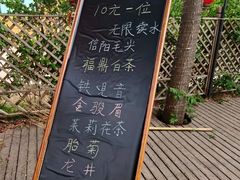 10元一位
无限续水
信阳毛尖
福鼎白茶
铁观音
金骏眉
茉莉花茶
胎菊
龙井